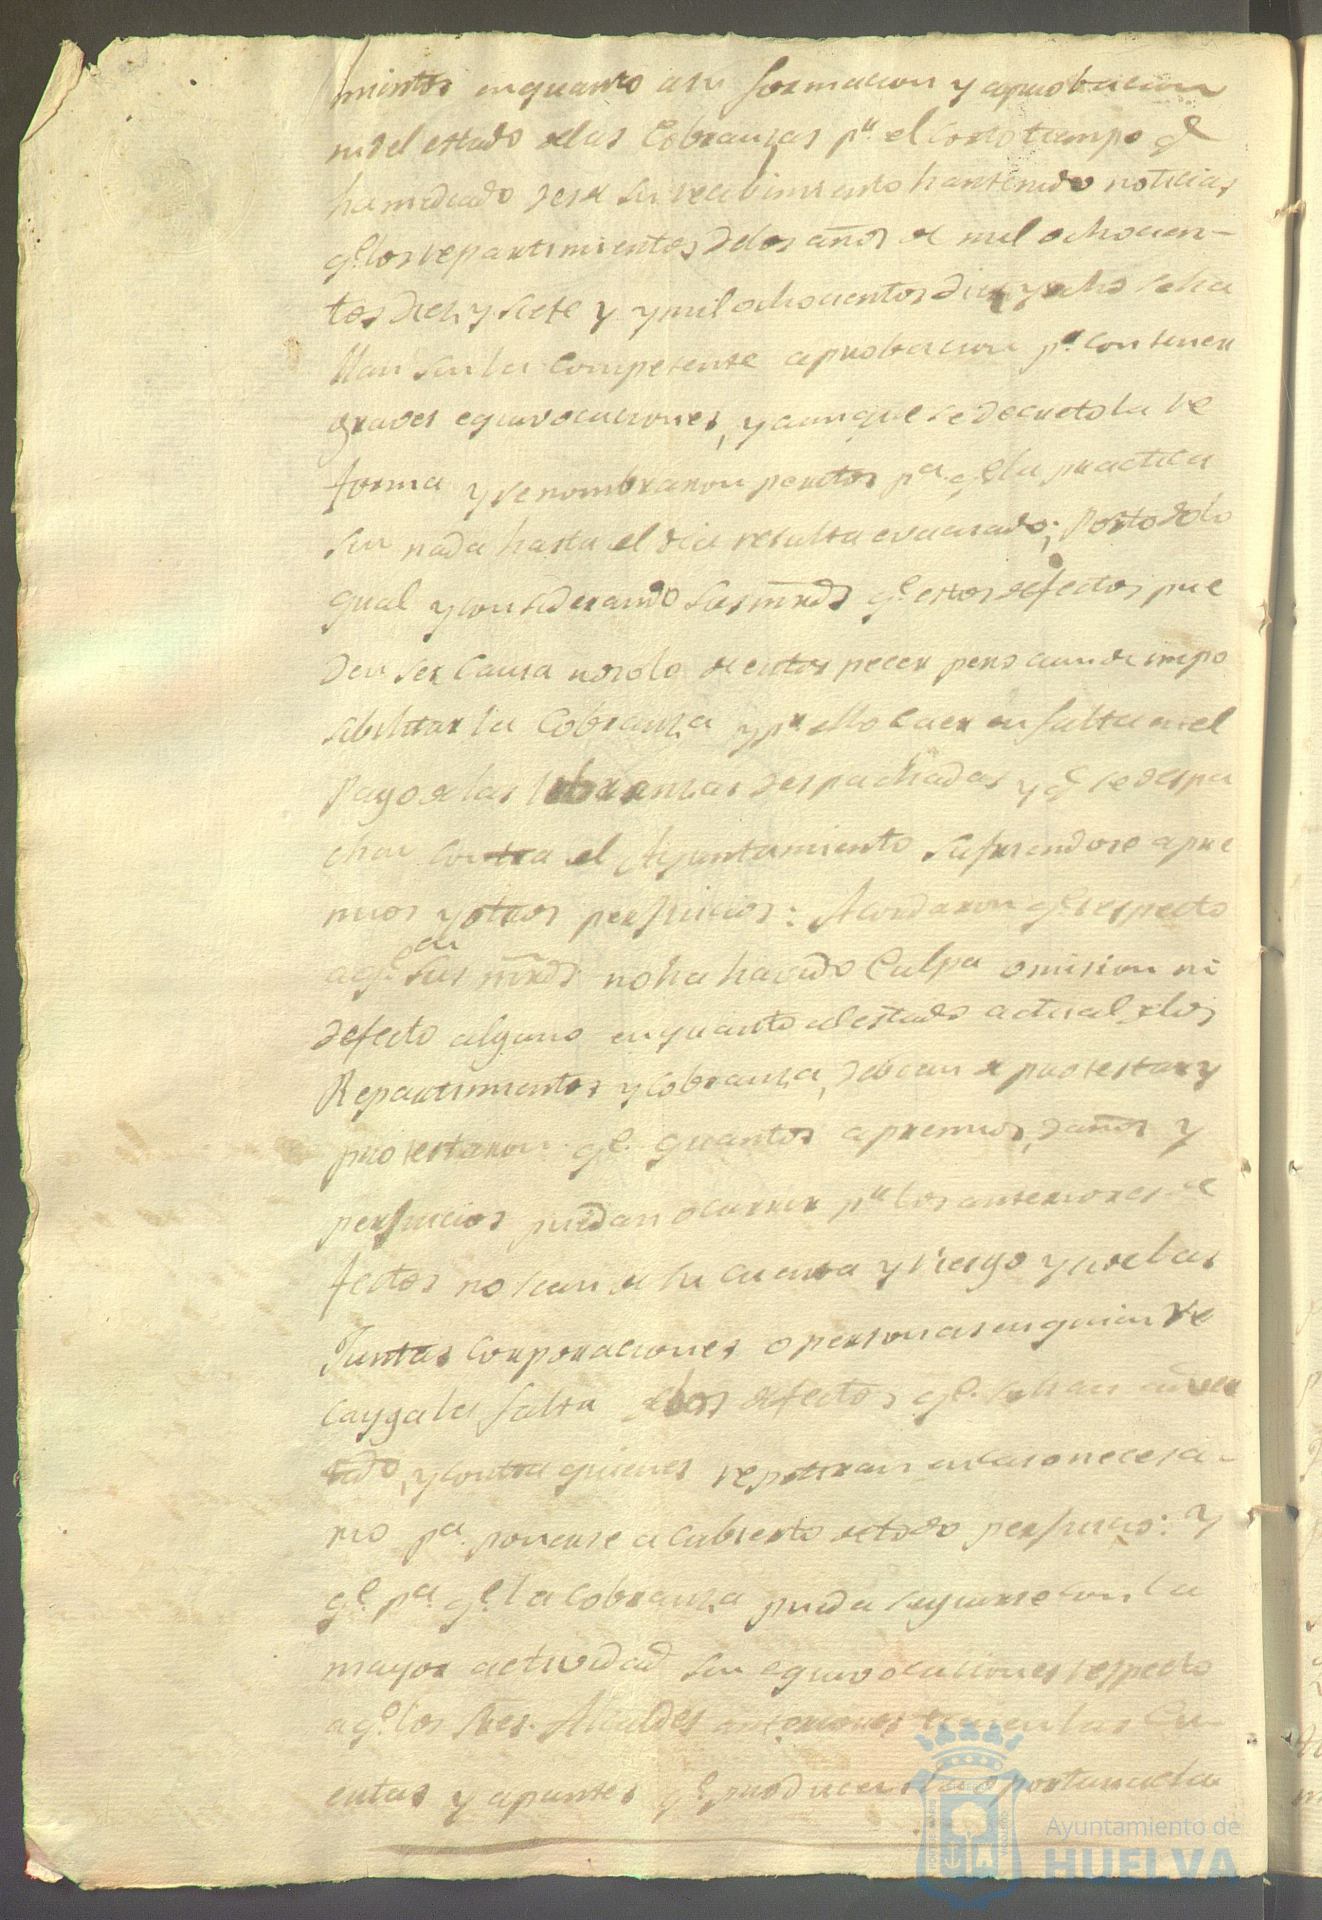 mientos en quanto a su formacion y aprobacion
ni del estado de las Cobranzas pr. el corto tiempo q.e
ha mediado desde su recibimiento han tenido noticias
q.e los repartimientos de los años de mil ochocien-
tos diez y siete y y mil ochocientos diez y ocho se ha
llan sin la competente aprobacion pr. contener
graves equivocaciones, y aunque se decreto la re
forma y se nombraron peritos pa. q.e la practica
sen nada hasta el dia resulta evacuado; Por todo lo
qual y considerando sus mrds q.e estos defectos pue
den ser causa no solo de entorpecer pero aun de impo
sibilitar la Cobranza y pr. ello caer en falta en el
Pago de las libranzas despachadas y q.e se despa
chen contra el Ayuntamiento sufriendose apre
mios y otros perjuicios: Acordaron q.e respecto
a q.e en sus mrds. no ha havido Culpa omision ni
defecto alguno en quanto al estado actual de los
Repartimientos y cobranza, debian de protestar y
protestaron q.e quantos apremios, daños y
perjuicios puedan ocurrir pr. los anteriores de
fectos no sean de su cuenta y riesgo y si de las
Juntas corporaciones o personas en quien re
cayga la falta de los defectos q.e se han
tado, y contra quienes repetiran en caso necesa-
rio pa. ponerse a cubierto de todo perjuicio: Y
q.e pa. q.e la Cobranza pueda seguirse con la
mayor actividad sin equivocaciones respecto
a q.e los Sres. Alcaldes anteriores tienen las Cu
entas y apuntes q.e producen la oportuna cla
Ayuntamiento de
HUELVA